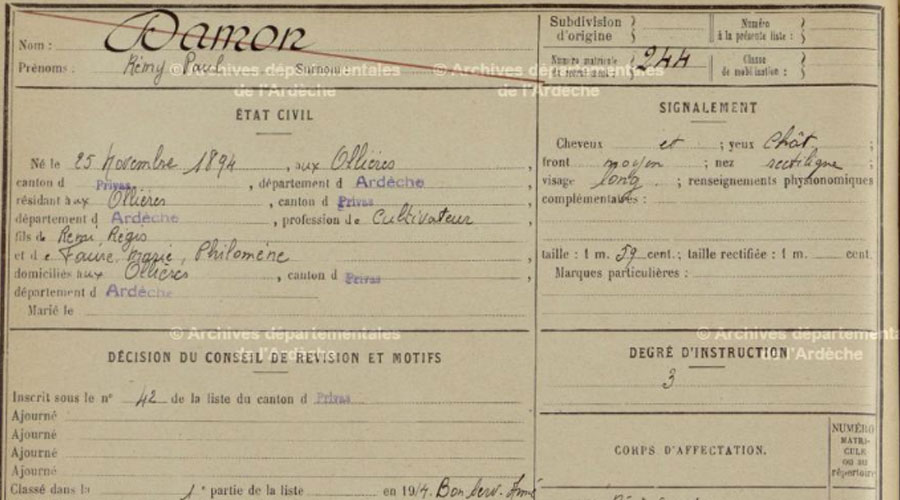 Nom : Damon
Prénoms : Rémy Paul Surnom
Subdivision d'origine
Numéro à la présente liste :
Numéro matricule du recrutement : 244
Classe de mobilisation :
© Archives départementales de l'Ardèche
© Archives départementales de l'Ardèche
ÉTAT CIVIL
Né le 25 Novembre 1894, aux Ollières
canton d Privas, département d Ardèche
résidant aux Ollières, canton d Privas
département d Ardèche, profession de Cultivateur
fils de Rémi, Régis
et de Faure, Marie, Philomène
domiciliés aux Ollières, canton d Privas
département d Ardèche
Marié le
SIGNALEMENT
Cheveux et ; yeux chât ;
front moyen ; nez rectiligne
visage long ; renseignements physionomiques
complémentaires :
taille : 1 m. 59 cent. ; taille rectifiée : 1 m. cent.
Marques particulières :
© Archives départementales de l'Ardèche
© Archives départementales de l'Ardèche
DÉCISION DU CONSEIL DE REVISION ET MOTIFS
Inscrit sous le n° 42 de la liste du canton d Privas
Ajourné
Ajourné
Ajourné
Ajourné
Classé dans la 1e partie de la liste en 1914. Bon Serv. Armé
DEGRÉ D'INSTRUCTION
3
CORPS D'AFFECTATION.
NUMÉRO
MATRI-
CULE
OU AU
répertoire